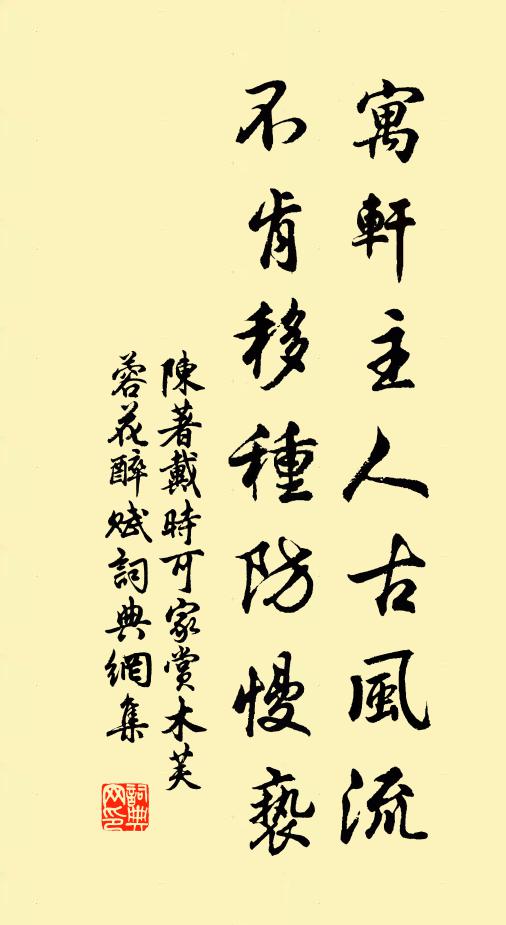 寓軒主人古風流
不肯移種防慢褻
陳著戴時可家賞木芙
蓉花醉賦詞典網集
詞典
网印